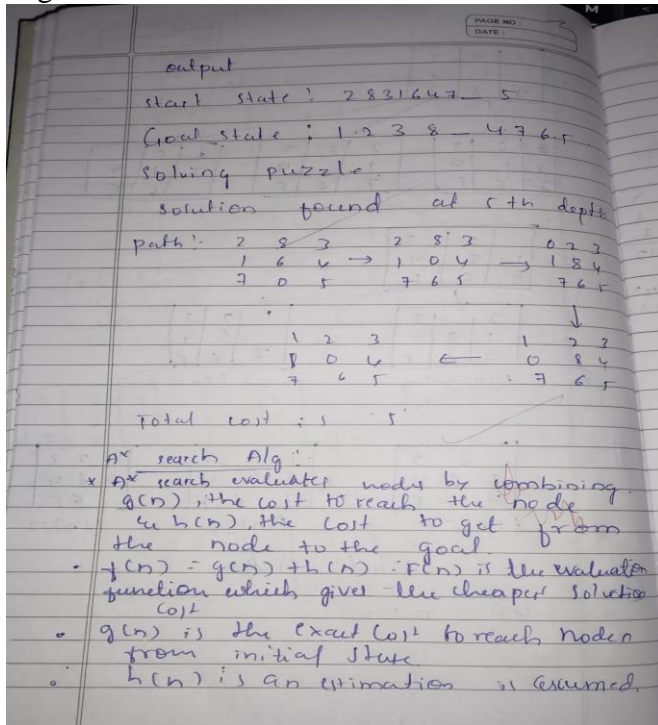 PAGE NO :
DATE :
output
start state : 2 8 3 1 6 4 7 _ 5
Goal state : 1 2 3 8 _ 4 7 6 5
solving puzzle
solution found at 5th depth
path : 2 8 3 2 8 3 0 2 3
1 6 4 → 1 0 4 → 1 8 4
7 0 5 7 6 5 7 6 5
↓
1 2 3 1 2 3
8 0 4 ← 0 8 4
7 6 5 7 6 5
Total cost is 5
A* search Alg :
* A* search evaluates nodes by combining
g(n), the cost to reach the node
& h(n), the cost to get from
the node to the goal.
• f(n) = g(n) + h(n) . F(n) is the evaluation
function which gives the cheapest solution
cost
• g(n) is the exact cost to reach node n
from initial state.
• h(n) is an estimation is assumed.